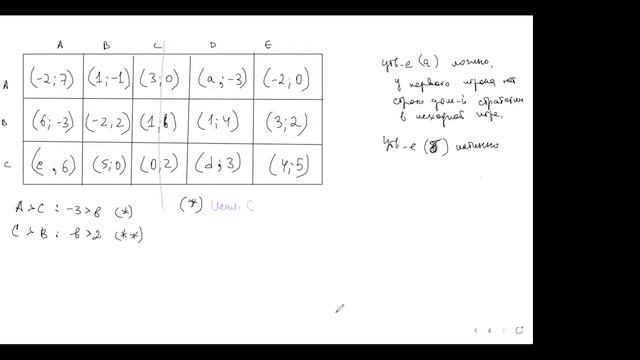 A B C D E
A (-2;7) (1;-1) (3;0) (a;-3) (-2;0)
B (6;-3) (-2;2) (1;b) (1;4) (3;2)
C (c,6) (5;0) (0;2) (d;3) (4;5)
A > C : -3>b (*)
C > B : b>2 (**)
(*) C
утв-е (a) ложно,
у первого игрока нет
строго дом-й стратегии
в исходной игре,
Утв-е (б) истинно
4